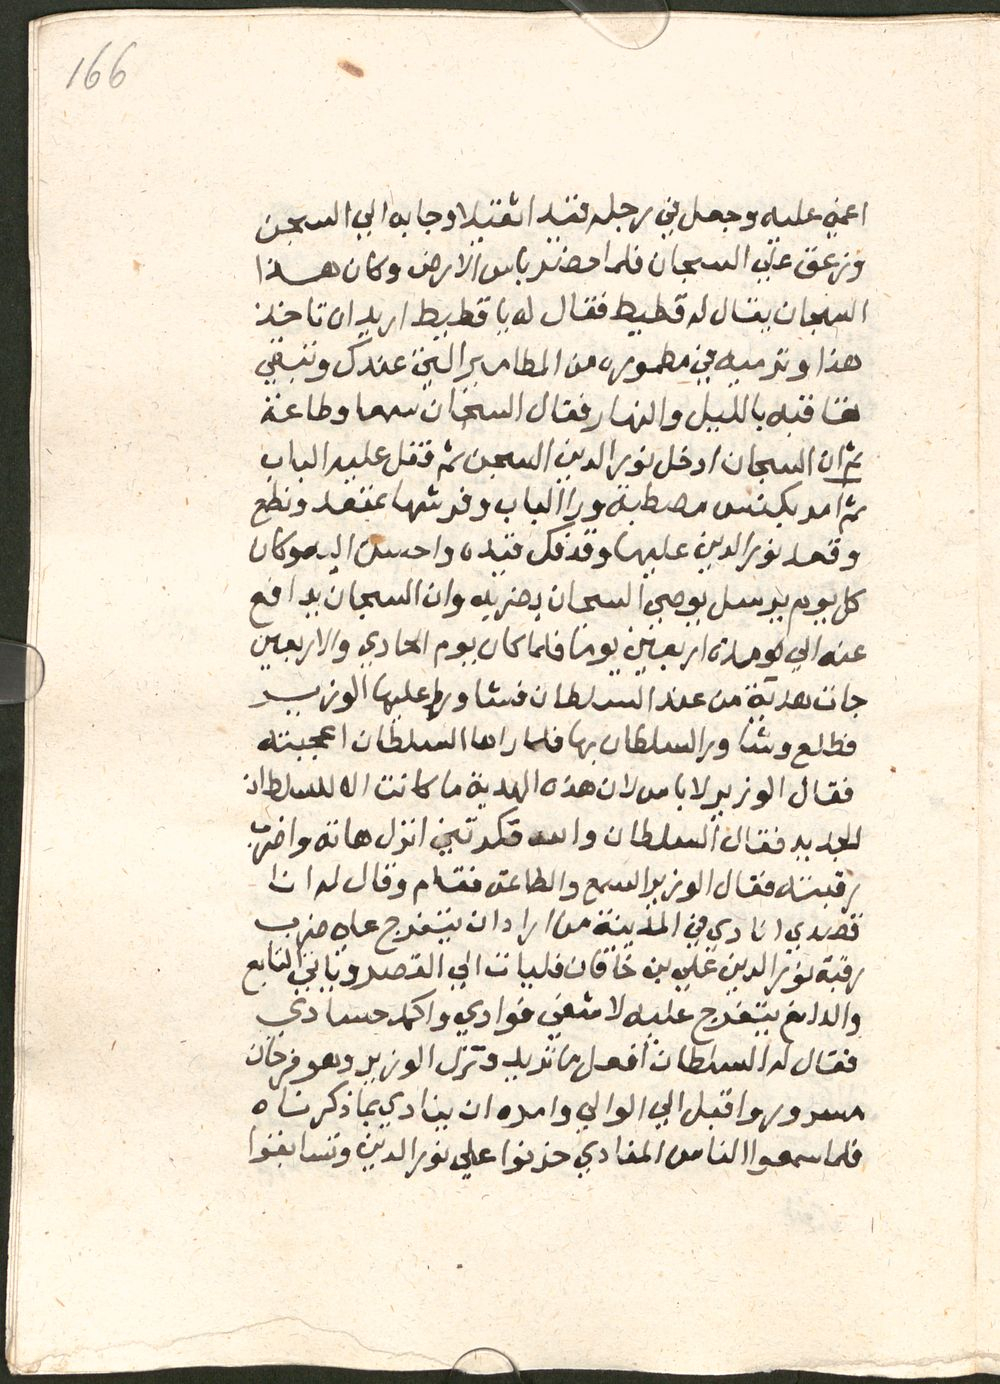 166
اغمي عليه وجعل في رجله قيد اثقيلا وجابه الي السجن
وزعق علي السجان فلما حضر باس الارض وكان هذا
السجان يقال له قطيط فقال له يا قطيط اريد ان تاخذ
هذا وترميه في مطموره من المطامير التي عندك وتبقي
تعاقبه بالليل والنهار فقال السجان سمعا وطاعة
ثم ان السجان ادخل نور الدين السجن ثم قفل عليه الباب
ثم امر بكنس مصطبة ورا الباب وفرشها بمقعد ونطع
وقعد نور الدين عليها وقد فك قيده واحسن اليه وكان
كل يوم يرسل يوصي السجان بضربه وان السجان يدافع
عنه الي مدة اربعين يوما فلما كان يوم الحادي والاربعين
جات هدية من عند السلطان فشاور عليها الوزير
فطلع وشاور السلطان بها فلما راها السلطان اعجبته
فقال الوزير لا باس لان هذه الهدية ما كانت الا للسلطان
الجديد فقال السلطان والله فكرتني انزل هاته واضرب
رقبته فقال الوزير السمع والطاعة فقام وقال له انا
قصدي انادي في المدينة من اراد ان يتفرج علي ضرب
رقبة نور الدين علي بن خاقان فليات الي القصر وياتي التابع
والدافع يتفرج عليه لاشفي فوادي واكمد حسادي
فقال له السلطان افعل ما تريد فنزل الوزير وهو فرحان
مسرور واقبل الي الوالي وامره ان ينادي بما ذكرناه
فلما سمعوا الناس المنادي حزنوا علي نور الدين وتسابقوا